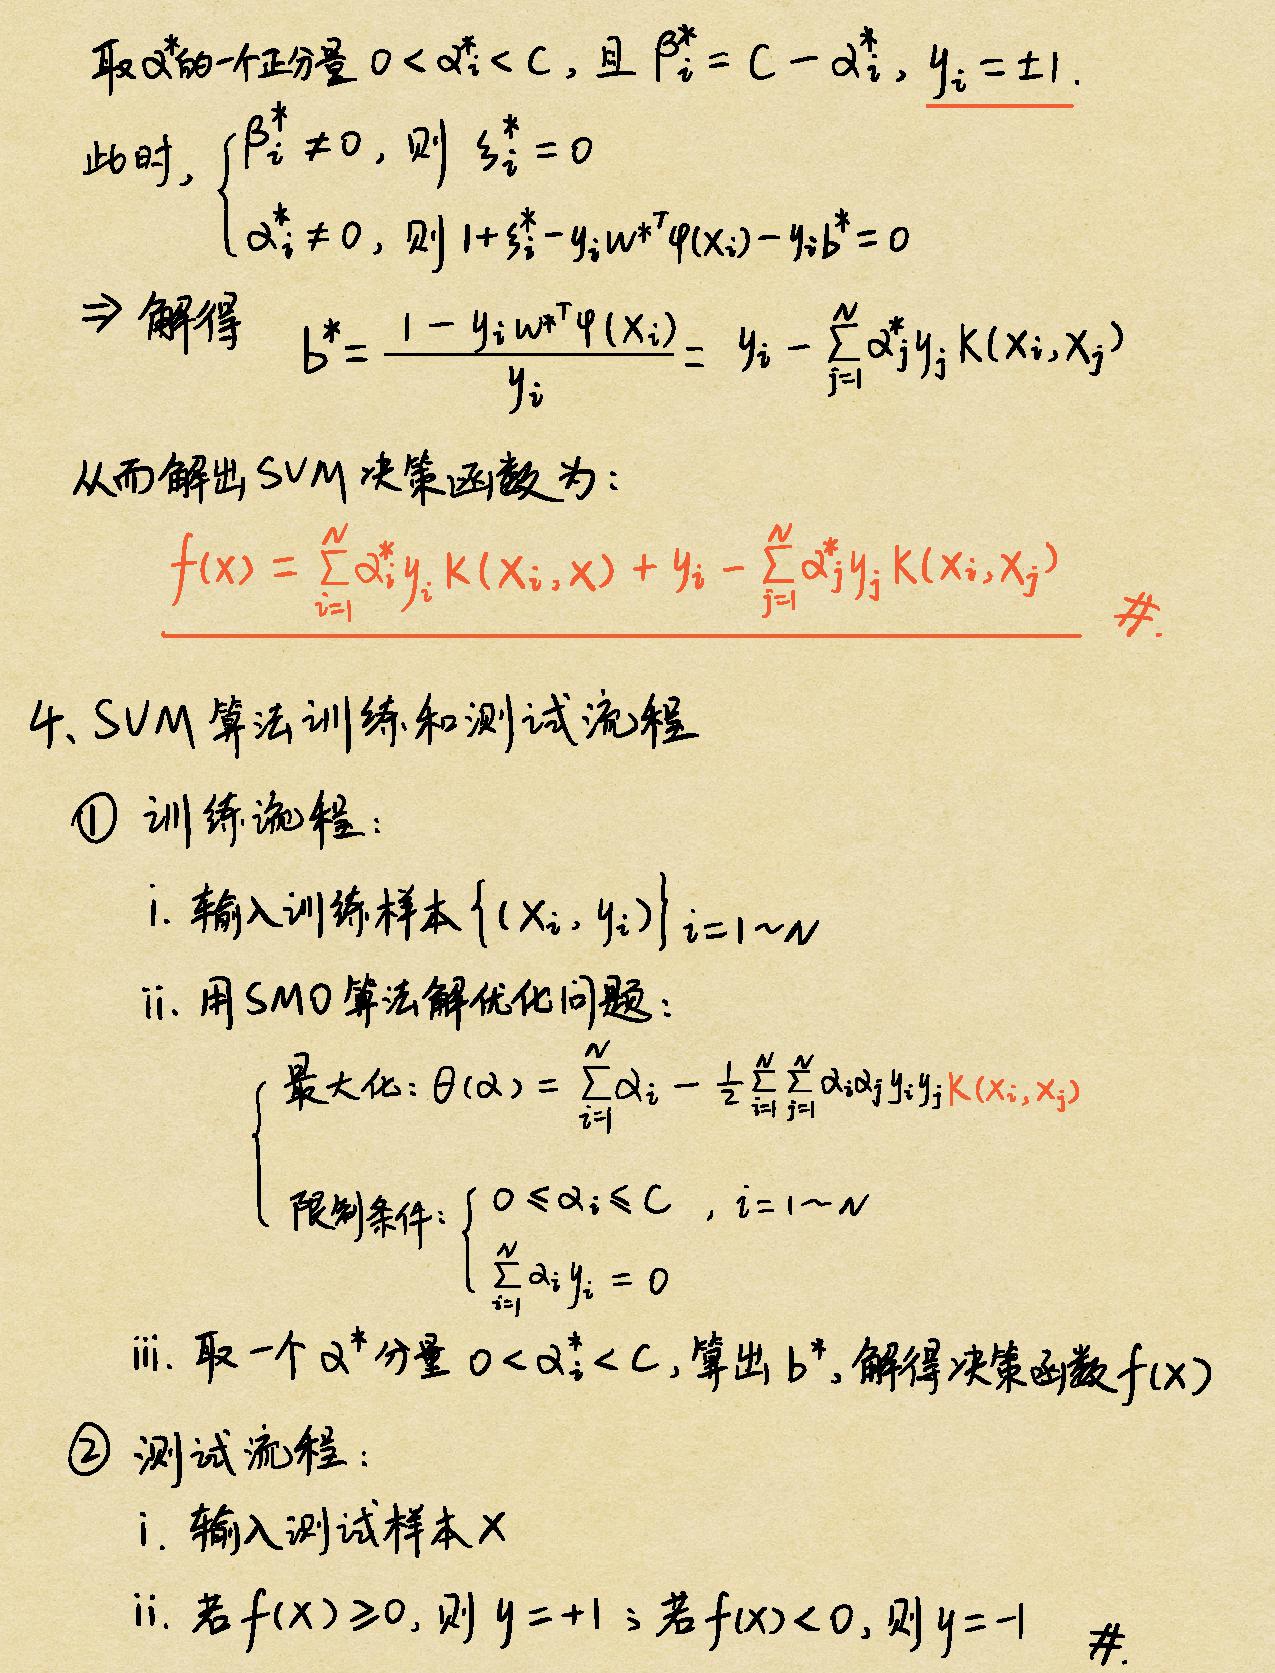 取α*的一个正分量 0 < αᵢ* < C, 且 βᵢ* = C - αᵢ*, yᵢ = ±1.
此时, { βᵢ* ≠ 0, 则 ξᵢ* = 0
αᵢ* ≠ 0, 则 1 + ξᵢ* - yᵢw*ᵀφ(xᵢ) - yᵢb* = 0
⇒ 解得 b* = (1 - yᵢw*ᵀφ(xᵢ)) / yᵢ = yᵢ - ∑_{j=1}^{N} αⱼ*yⱼK(xᵢ, xⱼ)
从而解出SVM决策函数为:
f(x) = ∑_{i=1}^{N} αᵢ*yᵢK(xᵢ, x) + yᵢ - ∑_{j=1}^{N} αⱼ*yⱼK(xᵢ, xⱼ) #.
4、SVM算法训练和测试流程
① 训练流程:
i. 输入训练样本{(xᵢ, yᵢ)} i=1~N
ii. 用SMO算法解优化问题:
最大化: θ(α) = ∑_{i=1}^{N} αᵢ - ½ ∑_{i=1}^{N} ∑_{j=1}^{N} αᵢαⱼyᵢyⱼK(xᵢ, xⱼ)
限制条件: { 0 ≤ αᵢ ≤ C , i=1~N
∑_{i=1}^{N} αᵢyᵢ = 0
iii. 取一个α*分量 0 < αᵢ* < C, 算出b*, 解得决策函数f(x)
② 测试流程:
i. 输入测试样本x
ii. 若f(x)≥0, 则y=+1; 若f(x)<0, 则y=-1 #.